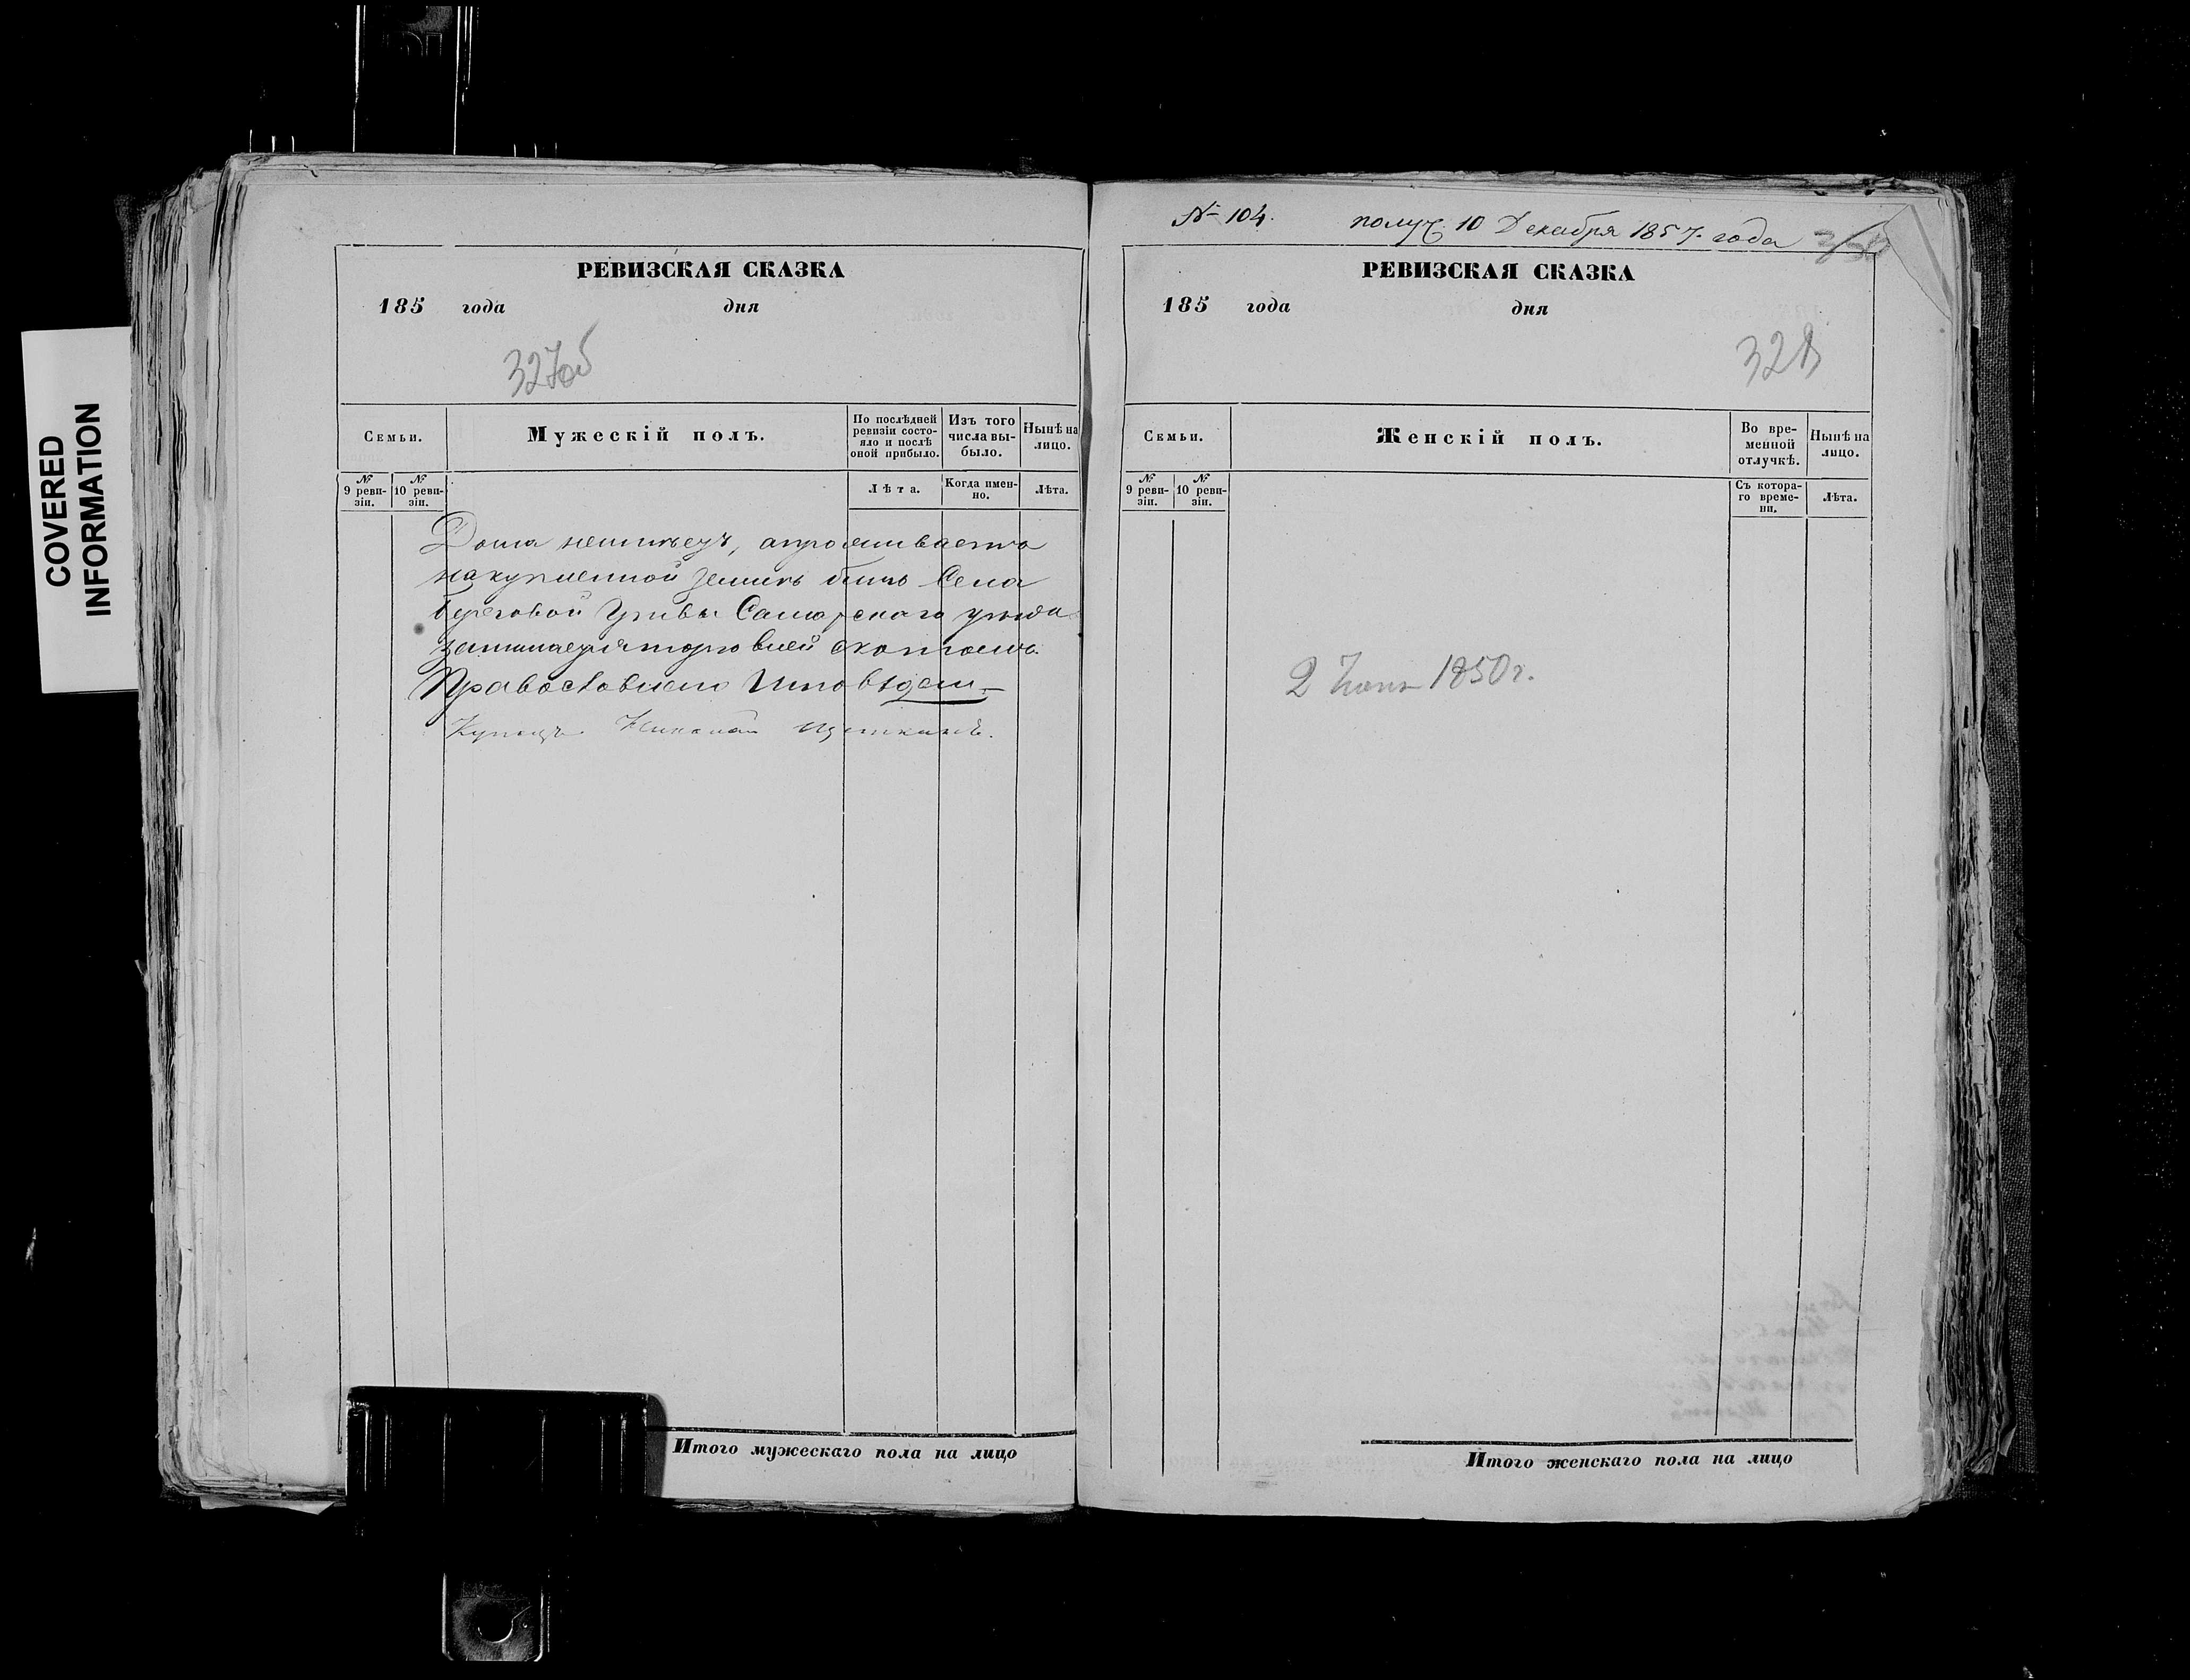 COVERED
INFORMATION
РЕВИЗСКАЯ СКАЗКА
185 года дня
327об
Семьи.
Мужескій полъ.
По послѣдней ревизіи состояло и послѣ оной прибыло.
Изъ того числа выбыло.
Нынѣ на лицо.
№ 9 ревизіи.
№ 10 ревизіи.
Лѣта.
Когда именно.
Лѣта.
Дома неимѣетъ, а проживаетъ
на купленной землѣ близь Села
Береговой Гривы Самарскаго уѣзда
занимается торговлей скотомъ.
Православнаго Исповѣдан.
Купецъ Николай
Итого мужескаго пола на лицо
№ 104.
получ. 10 Декабря 1857. года
РЕВИЗСКАЯ СКАЗКА
185 года дня
328
Семьи.
Женскій полъ.
Во временной отлучкѣ.
Нынѣ на лицо.
№ 9 ревизіи.
№ 10 ревизіи.
Съ котораго времени.
Лѣта.
2 1850 г.
Итого женскаго пола на лицо